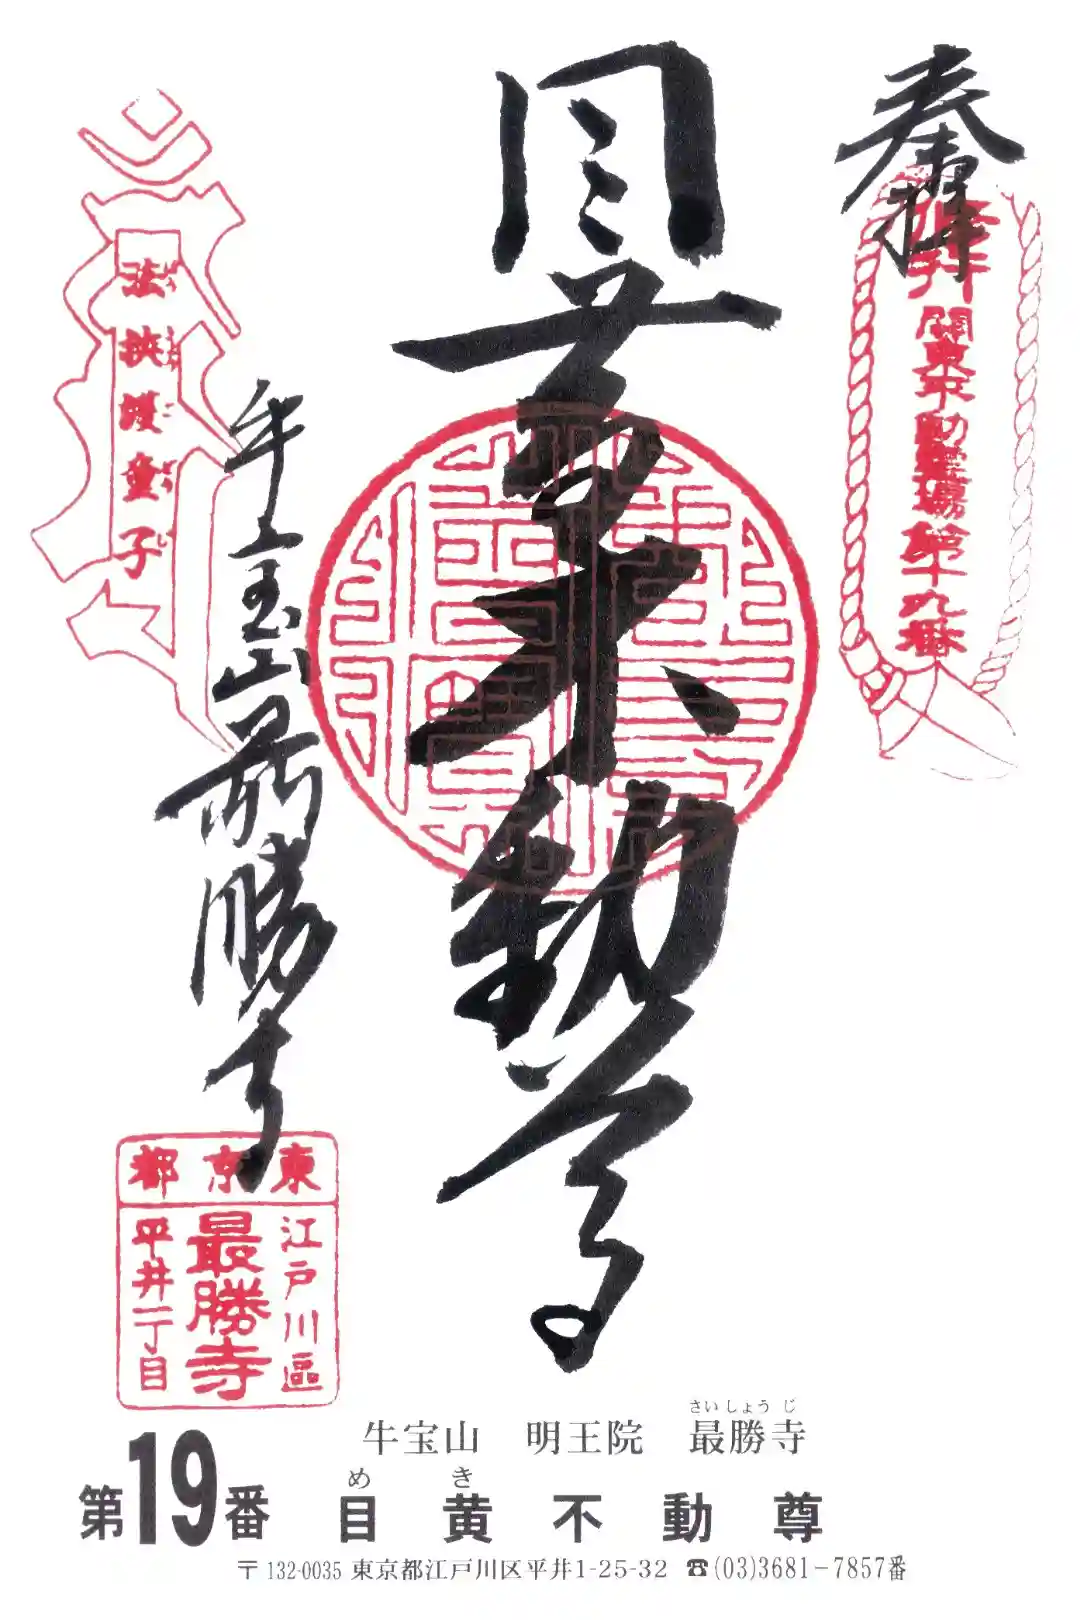 奉拝
平井
關東不動霊場第十九番
目黄不動尊
牛宝山最勝寺
法挾護童子
東京都
江戸川區
最勝寺
平井一丁目
牛宝山 明王院 最勝寺
さいしょうじ
第19番 目黄不動尊
めき
〒132-0035 東京都江戸川区平井1-25-32 ☎(03)3681-7857番